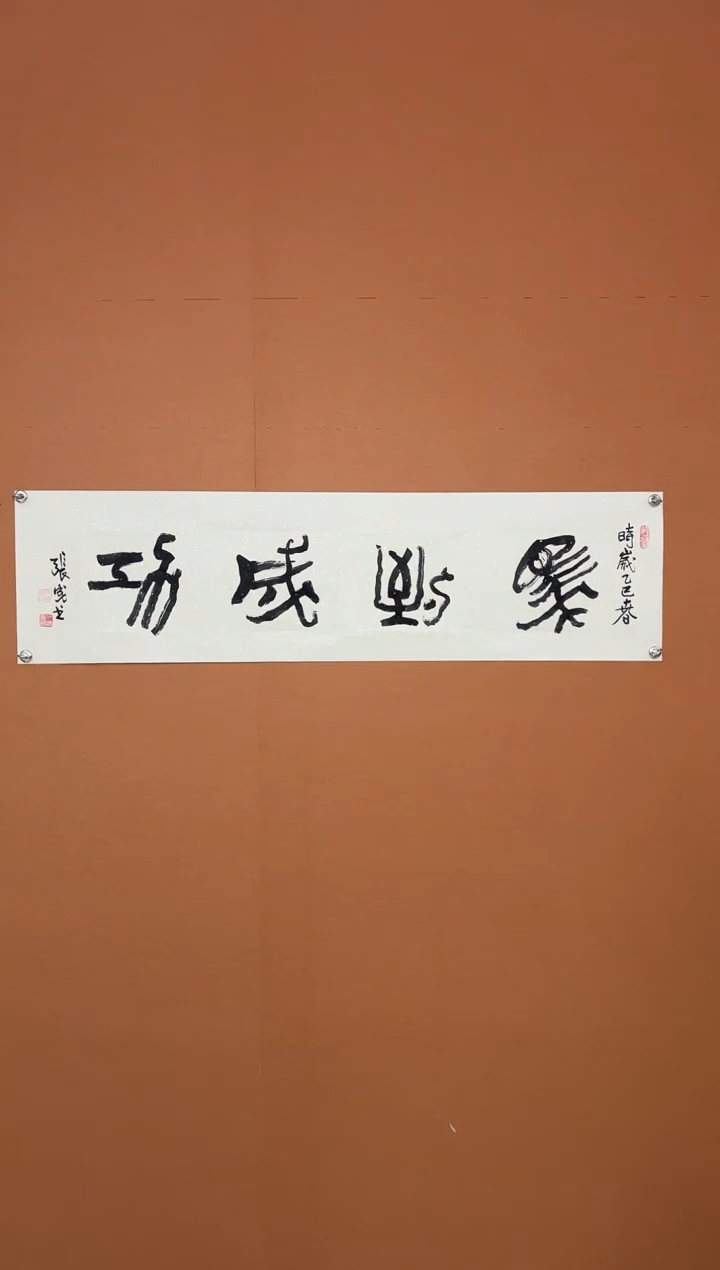 時歲乙巳春
馬到成功
張成書